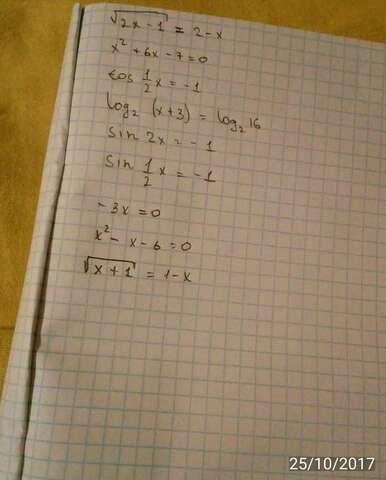 √2x-1 = 2-x
x² + 6x - 7 = 0
cos 1/2 x = -1
log₂ (x+3) = log₂ 16
sin 2x = -1
sin 1/2 x = -1
-3x = 0
x² - x - 6 = 0
√x+1 = 1-x
25/10/2017